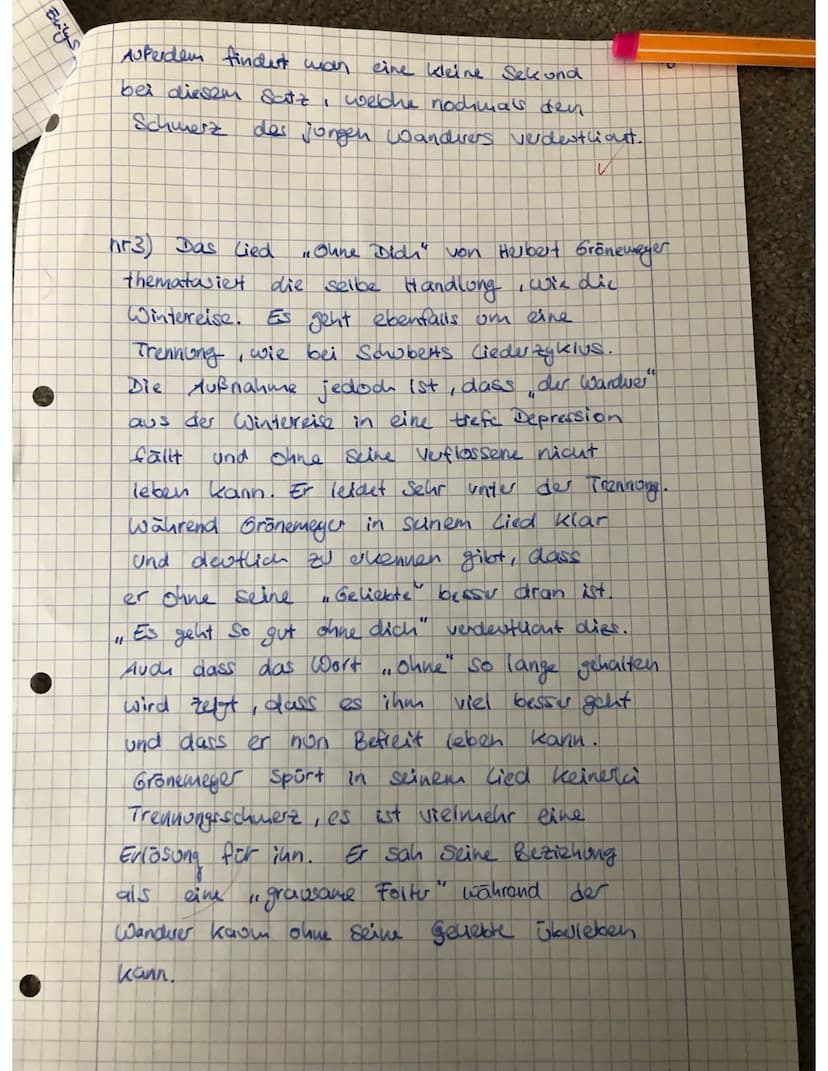 Außerdem findet man eine kleine Sekund
bei diesem Satz, welche nochmals den
Schmerz des jungen Wanderers verdeutlicht.
nr3) Das Lied „Ohne Dich" von Herbert Grönemeyer
thematasiert die selbe Handlung, wie die
Wintereise. Es geht ebenfalls um eine
Trennung, wie bei Schuberts Liederzyklus.
Die Außnahme jedoch ist, dass „der Wandrer"
aus der Wintereise in eine tiefe Depression
fällt und ohne seine Verflossene nicht
leben kann. Er leidet sehr unter der Trennung.
Während Grönemeyer in seinem Lied klar
und deutlich zu erkennen gibt, dass
er ohne seine „Geliebte" besser dran ist.
„Es geht so gut ohne dich" verdeutlicht dies.
Auch dass das Wort „ohne" so lange gehalten
wird zeigt, dass es ihm viel besser geht
und dass er nun Befreit leben kann.
Grönemeyer spürt in seinem Lied keinerlei
Trennungsschmerz, es ist vielmehr eine
Erlösung für ihn. Er sah seine Beziehung
als eine „grausame Folter" während der
Wandrer kaum ohne seine Geliebte überleben
kann.